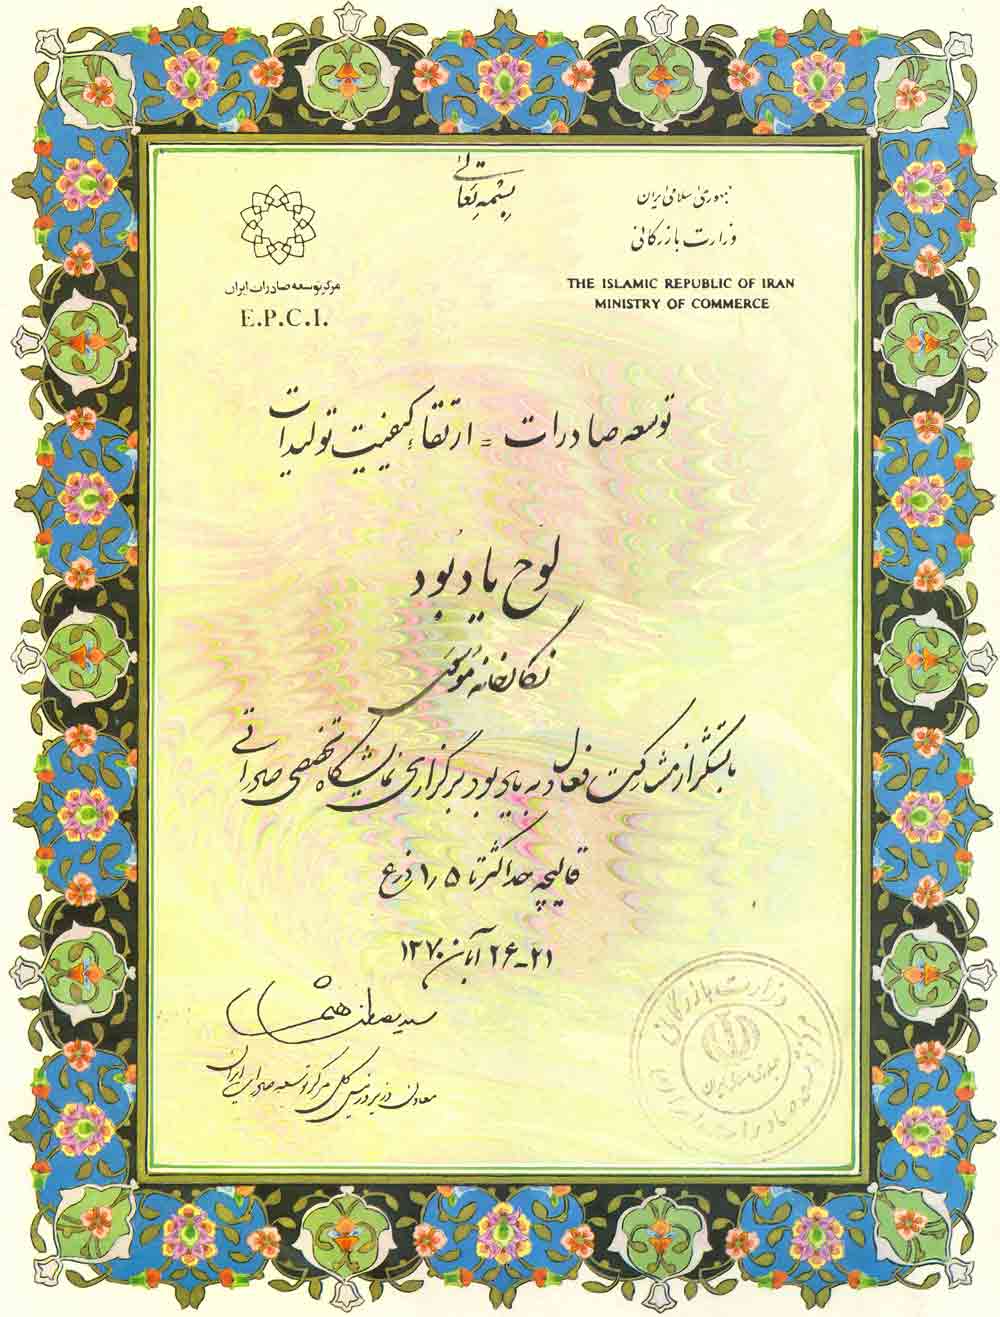 بسمه تعالی
جمهوری اسلامی ایران
وزارت بازرگانی
THE ISLAMIC REPUBLIC OF IRAN
MINISTRY OF COMMERCE
مرکز توسعه صادرات ایران
E.P.C.I.
توسعه صادرات = ارتقاء کیفیت تولیدات
لوح یادبود
نگارخانه موسوی
با تشکر از مشارکت فعال و به یادبود برگزاری نمایشگاه تخصصی صادراتی
قالیچه حداکثر تا ۱٫۵ ذرع
۲۱-۲۶ آبان ۱۳۷۰
سید مصطفی هاشمی
معاون وزیر و رئیس کل مرکز توسعه صادرات ایران
وزارت بازرگانی
جمهوری اسلامی ایران
مرکز توسعه صادرات ایران